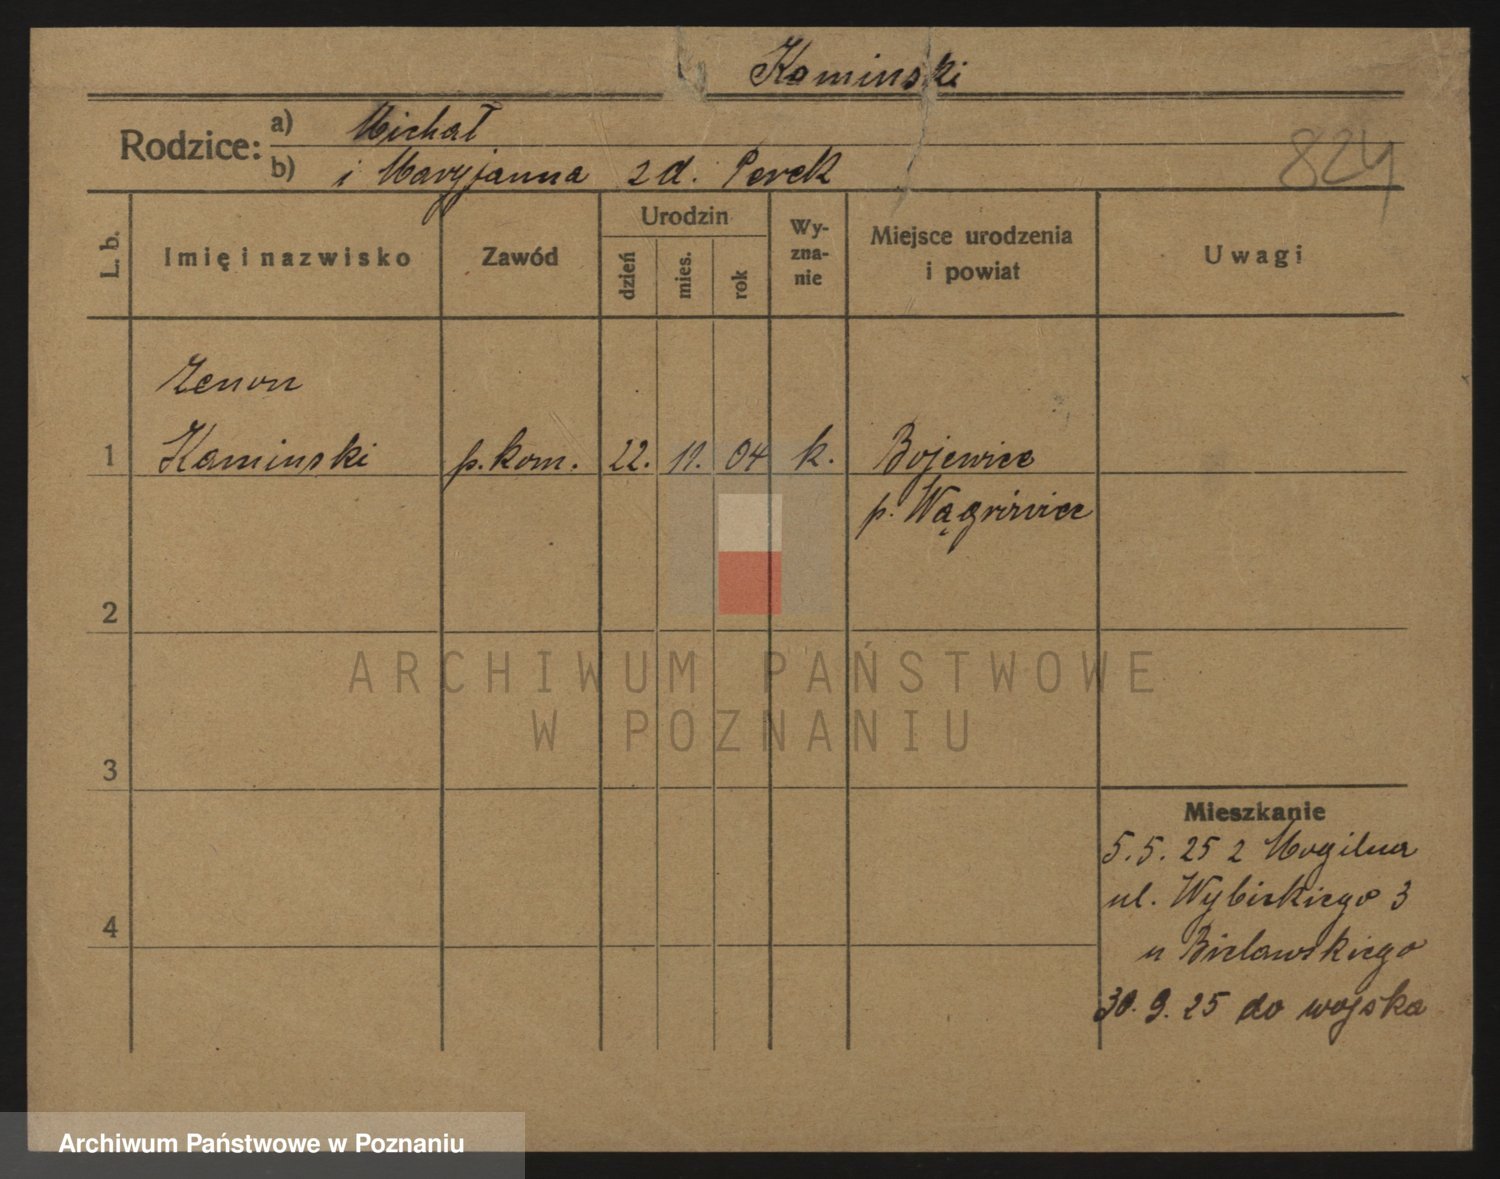 Kaminski
Rodzice: a) Michał
b) i Maryjanna z d. Perek
824
L. b.
Imię i nazwisko
Zawód
Urodzin
dzień
mies.
rok
Wy-
zna-
nie
Miejsce urodzenia
i powiat
Uwagi
Zenon
1 Kaminski p. kom. 22. 11. 04 k. Bojewice
p. Wągrówiec
2
ARCHIWUM PAŃSTWOWE
W POZNANIU
3
Mieszkanie
5.5.25 z Mogilna
ul. Wybickiego 3
4
u Bielawskiego
30.9.25 do wojska
Archiwum Państwowe w Poznaniu